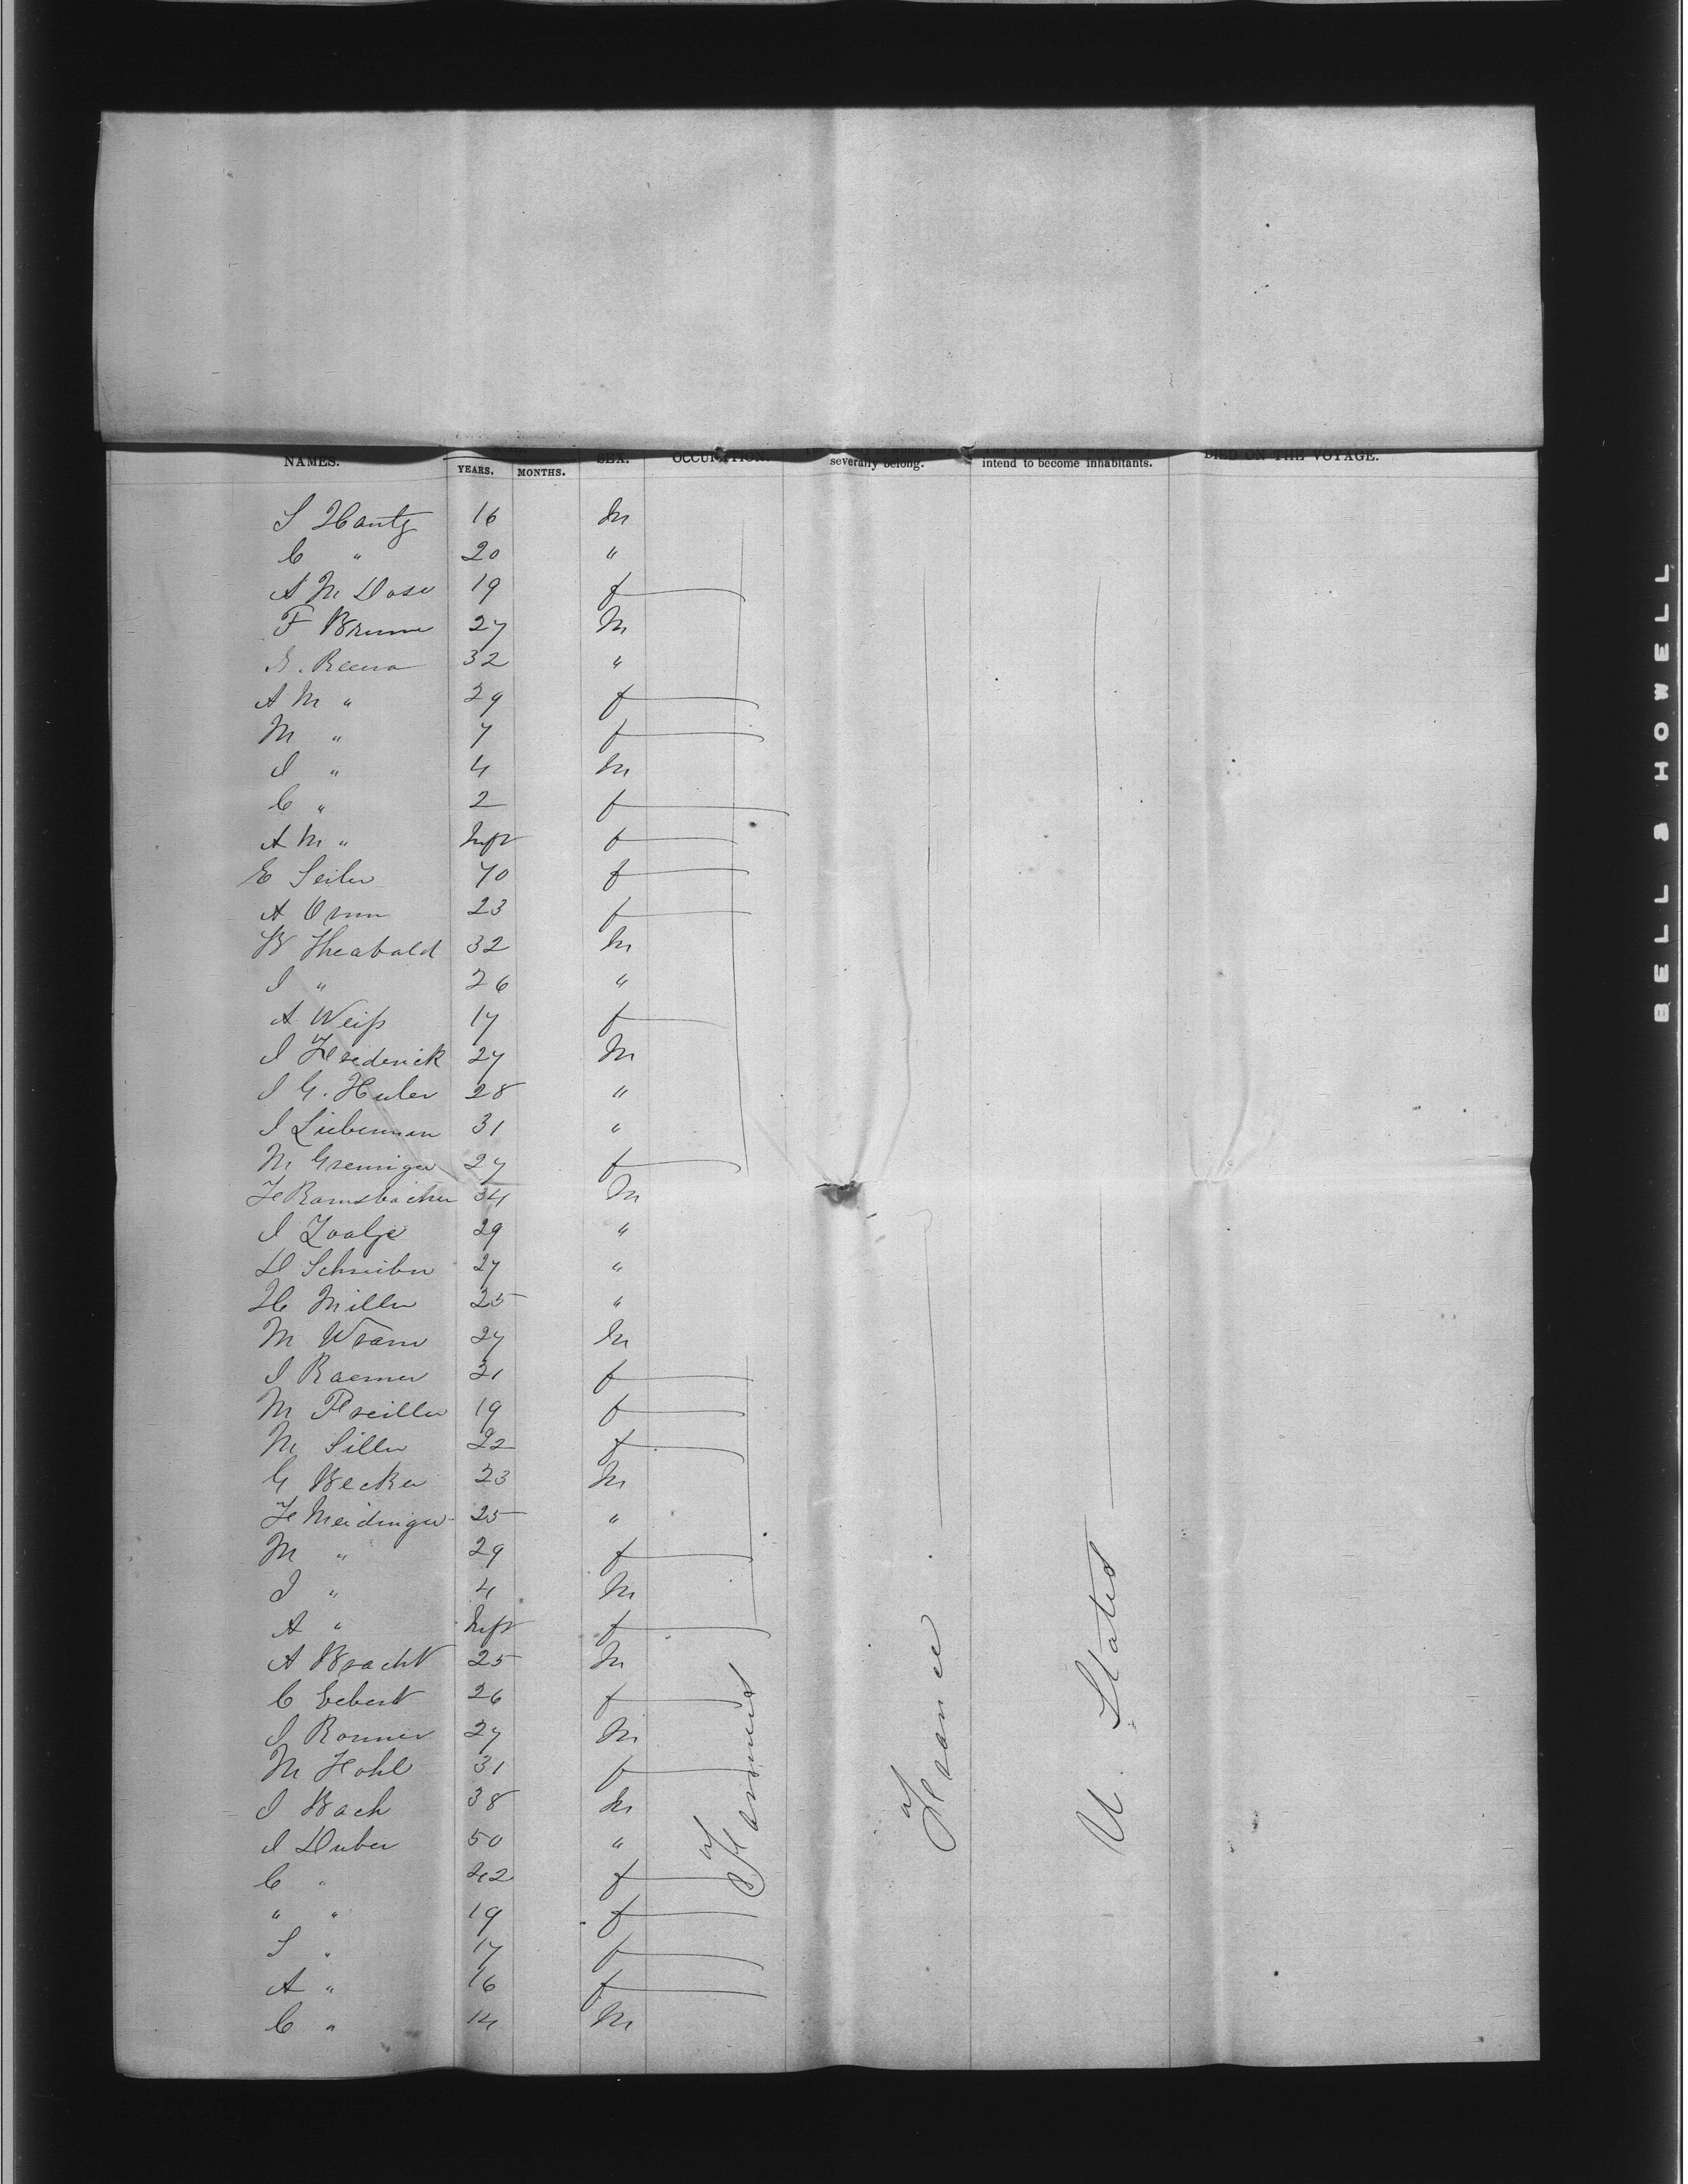 NAMES. YEARS. MONTHS. SEX. OCCUPATION. severally belong. intend to become inhabitants. DIED ON THE VOYAGE.
S Hantz 16 M
C " 20 "
A M Dose 19 f
F Brune 27 M
32 "
A M " 29 f
M " 7 f
I " 4 M
C " 2 f
A M " Inft f
E Seiler 70 f
A 23 f
B Theabald 32 M
I " 26 "
A Weiß 17 f
I Frederick 27 M
I G. Huber 28 "
I Lieberman 31 "
M Greninger 27 f
F Ramsbacher 34 M
I 29 "
D Schreiber 27 "
H Miller 25 "
M 27 M
I Raemer 21 f
M Preiller 19 f
M Siller 22 f
G Becker 23 M
F Meidinger 25 "
M " 29 f
I " 4 M
A " Inft f
A Bracht 25 M
C Eebert 26 f
I Ronner 27 M
M Hohl 31 f
I Bach 38 M
I Duber 50 "
C " 42 f
" " 19 f
S " 17 f
A " 16 f
C " 14 M
Farmers
France
U. States
BELL & HOWELL